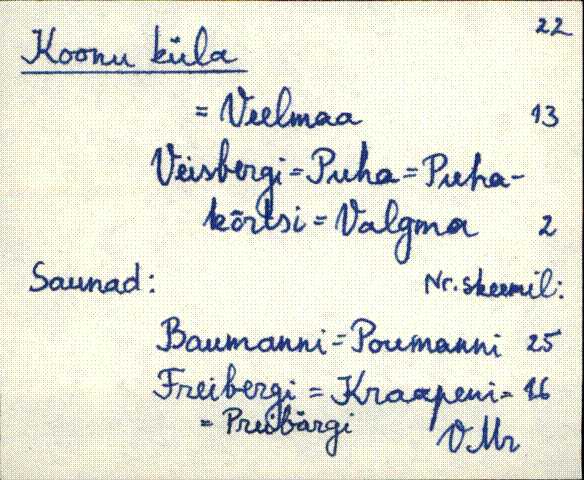 22
Koonu küla
= Veelmaa 13
Veisbergi = Puha = Puha-
kõrtsi = Valgma 2
Saunad: Nr. skeemil:
Baumanni = Poumanni 25
Freibergi = Kraapeni = 16
= Preibärgi VMr